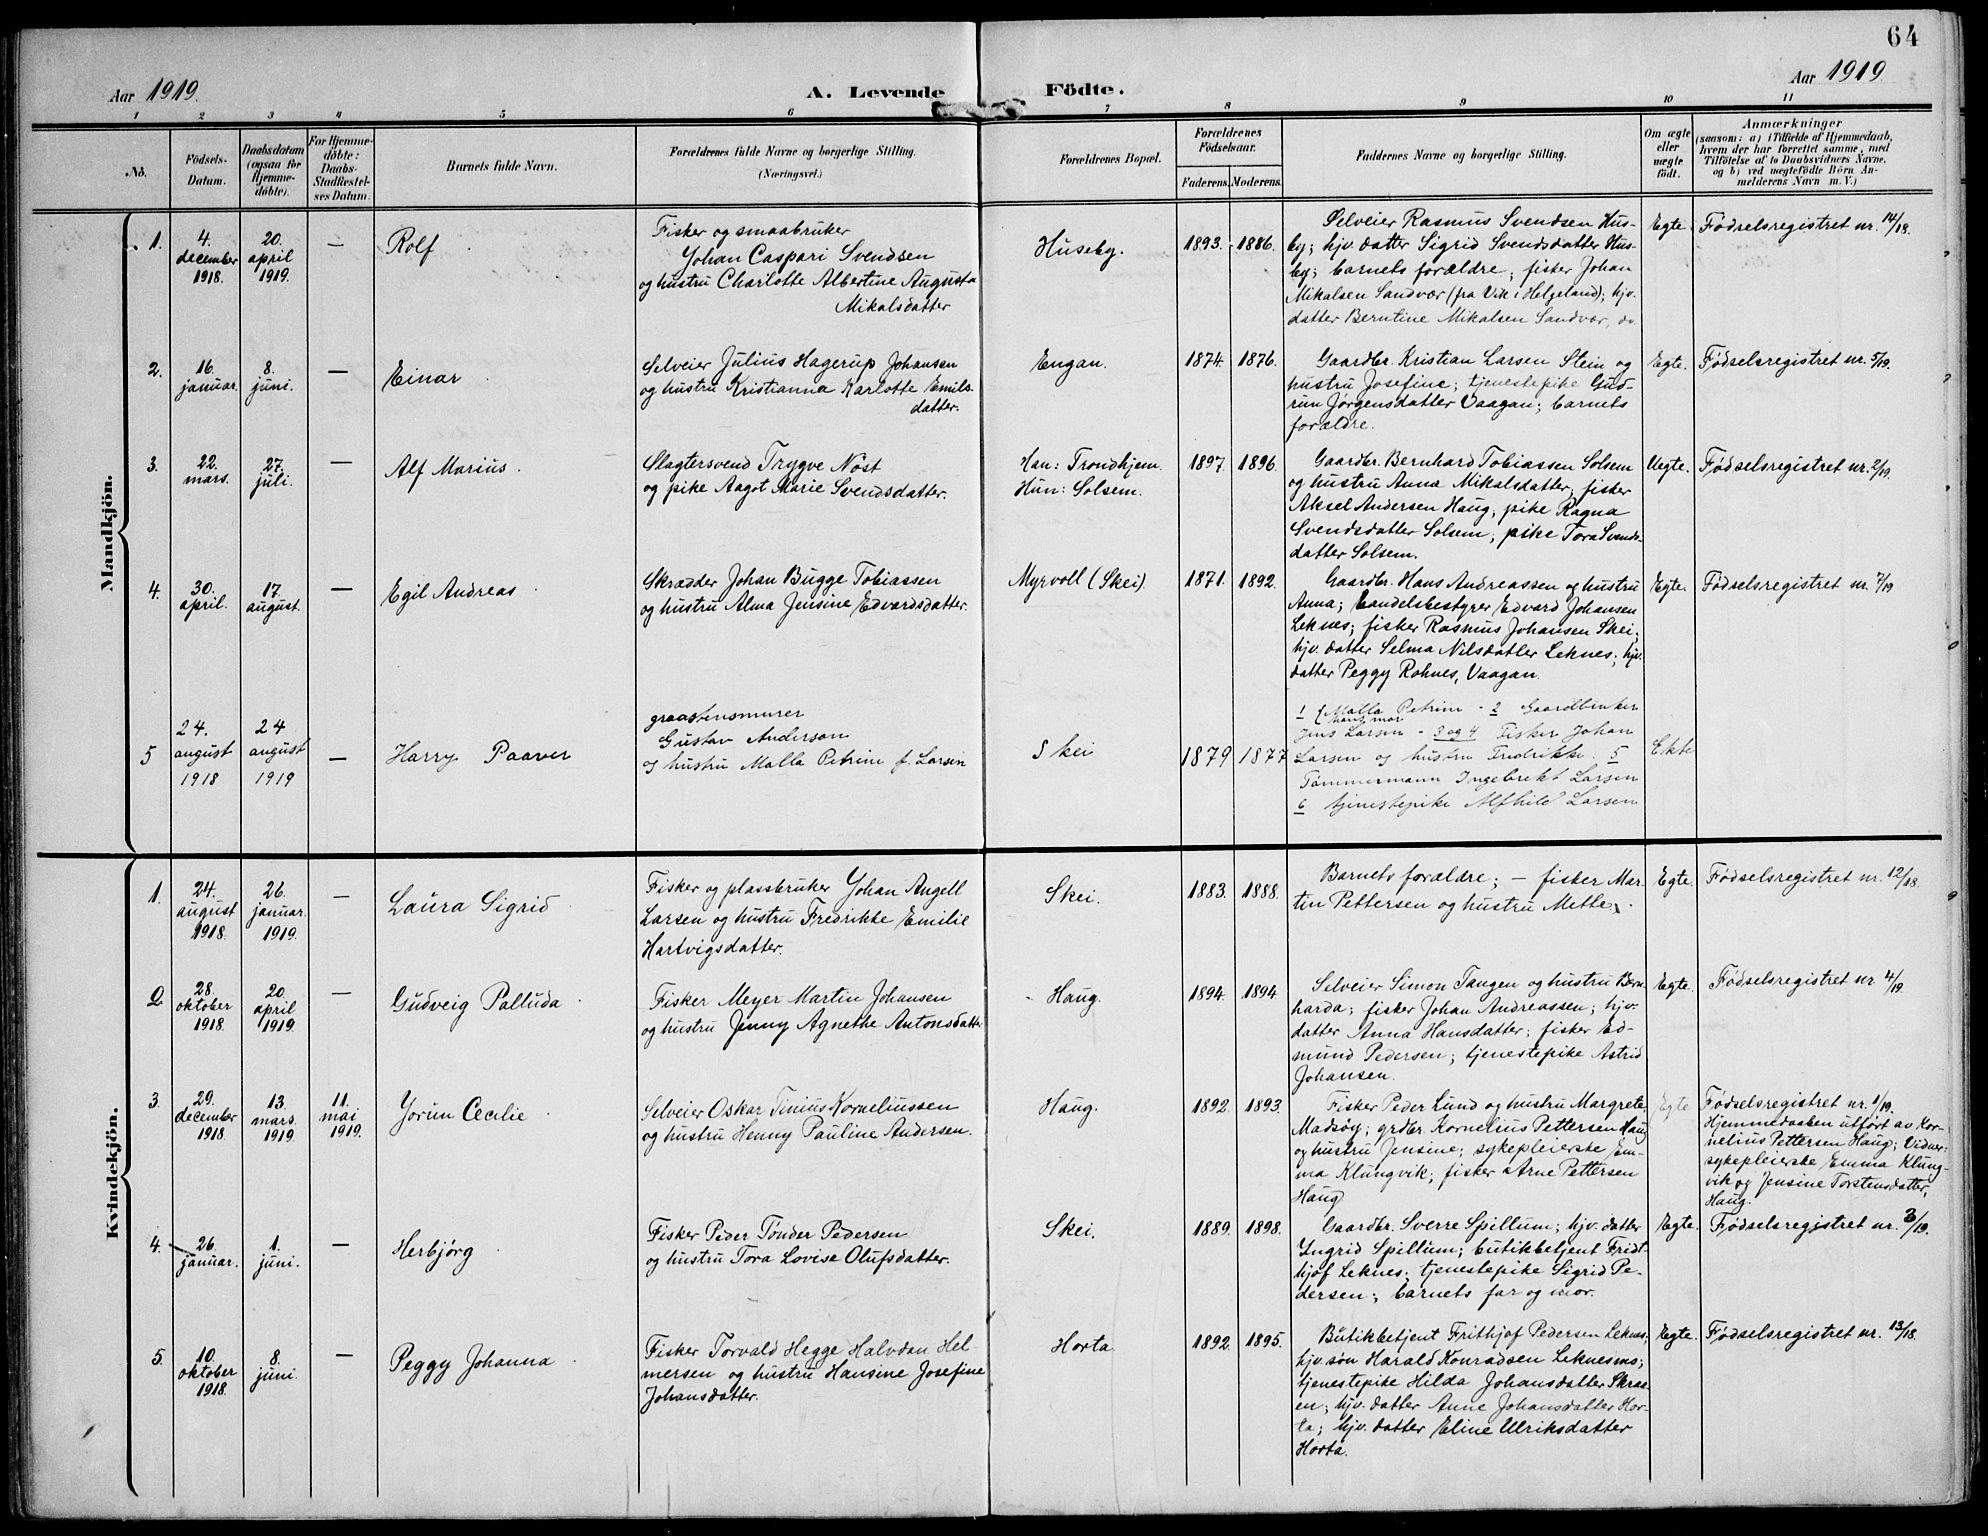 64
Aar 1919.
A. Levende Födte.
Aar 1919
1 2 3 4 5 6 7 8 9 10 11
No.
Födsels-
Datum.
Daabsdatum
(ogsaa for
Hjemme-
döbte).
For Hjemme-
döbte:
Daabs-
Stadfestel-
ses Datum.
Barnets fulde Navn.
Forældrenes fulde Navne og borgerlige Stilling.
(Næringsvei.)
Forældrenes Bopæl.
Forældrenes
Födselsaar.
Faderens. Moderens.
Faddernes Navne og borgerlige Stilling.
Om ægte
eller
uægte
födt.
Anmærkninger
(saasom: a) i Tilfælde af Hjemmedaab,
hvem der har forrettet samme, med
Tilföielse af to Daabsvidners Navne,
og b) ved uægtefödte Börn An-
melderens Navn m. V.)
Mandkjön.
1.
4.
december
1918.
20.
april
1919.
—
Rolf
Fisker og smaabruker
Johan Caspari Svendsen
og hustru Charlotte Albertine Augusta
Mikalsdatter
Huseby.
1893. 1886.
Selveier Rasmus Svendsen Hus-
by; hjv. datter Sigrid Svendsdatter Hus-
by; barnets forældre; fisker Johan
Mikalsen Sandvær (fra Vik i Helgeland); hjv.
datter Berntine Mikalsen Sandvær, do.
Egte.
Fødselsregistret nr. 14/18.
2.
16.
januar.
8.
juni.
—
Einar
Selveier Julius Hagerup Johansen
og hustru Kristianna Karlotte Emils-
datter.
Engan.
1874. 1876.
Gaardbr. Kristian Larsen Stein og
hustru Josefine; tjenestepike Gud-
run Jørgensdatter Vaagan; barnets
forældre.
Egte.
Fødselsregistret nr. 5/19.
3.
22.
mars.
27.
juli.
—
Alf Marius.
Slagtersvend Trygve Nöst
og pike Aagot Marie Svendsdatter.
Han: Trondhjem.
Hun: Solsem.
1897. 1896.
Gaardbr. Bernhard Tobiassen Solsem
og hustru Anna Mikalsdatter; fisker
Aksel Andersen Haug; pike Ragna
Svendsdatter Solsem; pike Tora Svends-
datter Solsem.
Uegte.
Fødselsregistret nr. 2/19.
4.
30.
april.
17.
august.
—
Egil Andreas
Skrædder Johan Bugge Tobiassen
og hustru Alma Jensine Edvardsdatter.
Myrvoll (Skei)
1871. 1892.
Gaardbr. Hans Andreassen og hustru
Anna; handelsbestyrer Edvard Johansen
Leknes; fisker Rasmus Johansen Skei;
hjv. datter Selma Nilsdatter Leknes; hjv.
datter Peggy Rohnes, Vaagan.
Egte.
Fødselsregistret nr. 7/19
5
24.
august
1918
24
august
1919
—
Harry Paaver
graastensmurer
Gustav Anderson
og hustru Malla Petrine f. Larsen
Skei
1879 1877
1 (Malla Petrine - 2 Gaardbruker
hans mor
Jens Larsen - 3 og 4 Fisker Johan
Larsen og hustru Fredrikke. 5
Tømmermann Ingebrekt Larsen
6 tjenestepike Alfhild Larsen
Ekte
Kvindekjön.
1.
24.
august
1918.
26.
januar.
1919.
—
Laura Sigrid
Fisker og plassbruker Johan Angell
Larsen og hustru Fredrikke Emilie
Hartvigsdatter.
Skei.
1883. 1888.
Barnets forældre; — fisker Mar-
tin Pettersen og hustru Mette.
Egte.
Fødselsregistret nr. 12/18.
2.
28.
oktober
1918.
20.
april
1919.
—
Gudveig Palluda
Fisker Meyer Martin Johansen
og hustru Jenny Agnethe Antonsdatter
Haug.
1894. 1894
Selveier Simon Tangen og hustru Bern-
harda; fisker Johan Andreassen; hjv.
datter Anna Hansdatter; fisker Ed-
mund Pedersen; tjenestepike Astrid
Johansen.
Egte.
Fødselsregistret nr 4/19.
3.
29.
december
1918.
13.
mars.
1919.
11.
mai
1919.
Jorun Cecilie
Selveier Oskar Tinius Korneliussen
og hustru Henny Pauline Andersen.
Haug.
1892. 1893.
Fisker Peder Lund og hustru Margrete
Madsøy; grdbr. Kornelius Pettersen Haug
og hustru Jensine; sykepleierske Em-
ma Klungvik; fisker Arne Pettersen
Haug
Egte
Fødselsregistret nr. 1/19.
Hjemmedaaben utført av Kor-
nelius Pettersen Haug; Vidner:
sykepleierske Emma Klung-
vik og Jensine Torstensdatter,
Haug.
4.
26.
januar.
1.
juni.
—
Herbjørg
Fisker Peder Tønder Pedersen
og hustru Tora Lovise Olufsdatter.
Skei.
1889. 1898.
Gaardbr. Sverre Spillum; hjv. datter
Ingrid Spillum; butikbetjent Fridt-
hjof Leknes; tjenestepike Sigrid Pe-
dersen; barnets far og mor.
Egte.
Fødselsregistret nr. 3/19.
5.
10.
oktober
1918.
8.
juni.
—
Peggy Johanna
Fisker Torvald Hegge Halvdan Hel
mersen og hustru Hansine Josefine
Johansdatter.
Horta
1892. 1895.
Butikbetjent Frithjof Pedersen Leknes;
hjv. søn Harald Konradsen Leknesms;
tjenestepike Hilda Johansdatter Skraa-
en; hjv. datter Anne Johansdatter Hor-
ta; hjv. datter Eline Ulriksdatter
Horta.
Egte.
Fødselsregistret nr. 13/18.